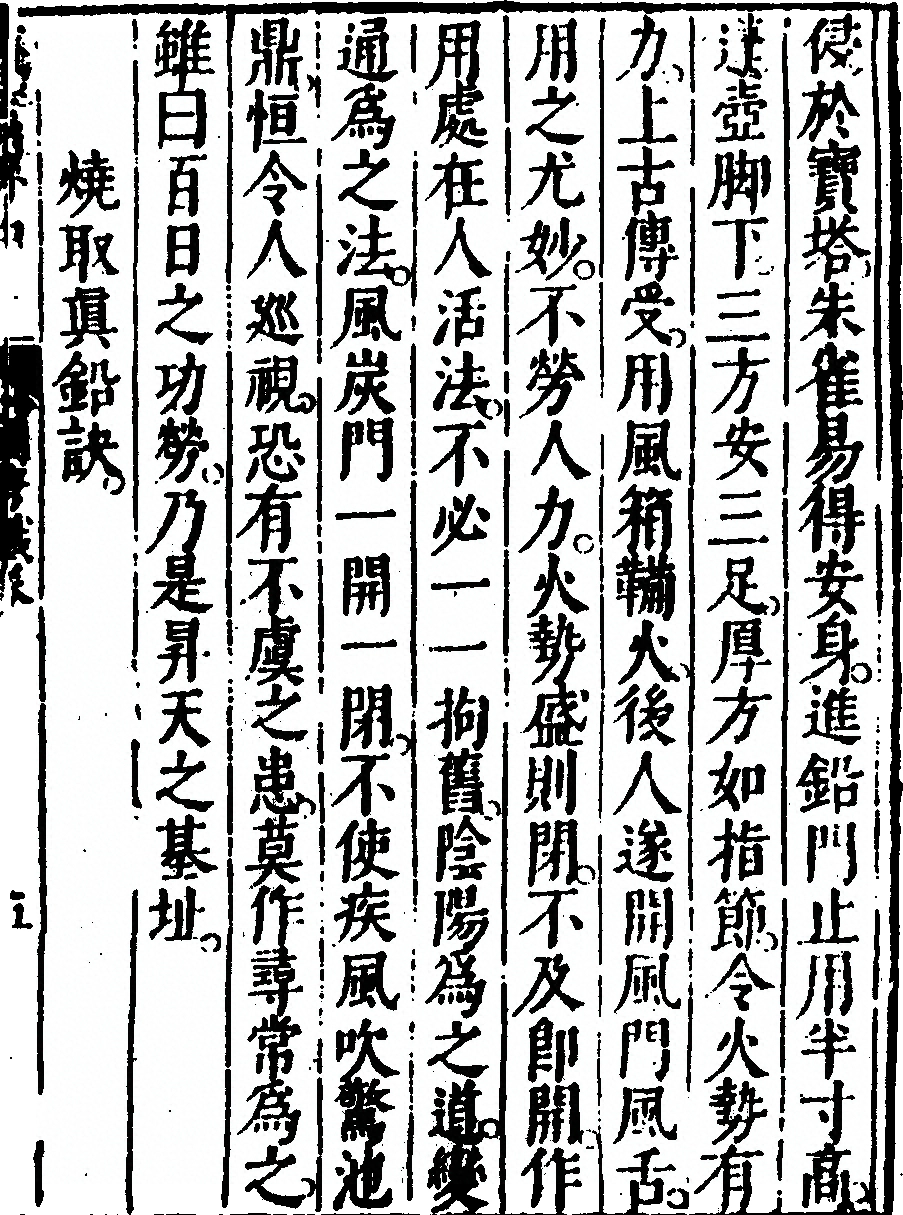 侵於寶塔朱雀易得安身。進鉛門止用半寸高。
蓬壺脚下三方安三足。厚方如指節。令火勢有
力。上古傳受。用風箱鞴火。後人遂開風門風舌。
用之尤妙。不勞人力。火勢盛則閉。不及即開作
用處在人活法。不必一一拘舊。陰陽爲之道。變
通爲之法。風炭門一開一閉。不使疾風吹驚池
鼎。恒令人巡視。恐有不虞之患。莫作尋常爲之。
雖曰百日之功勞。乃是昇天之基址。
燒取眞鉛訣。